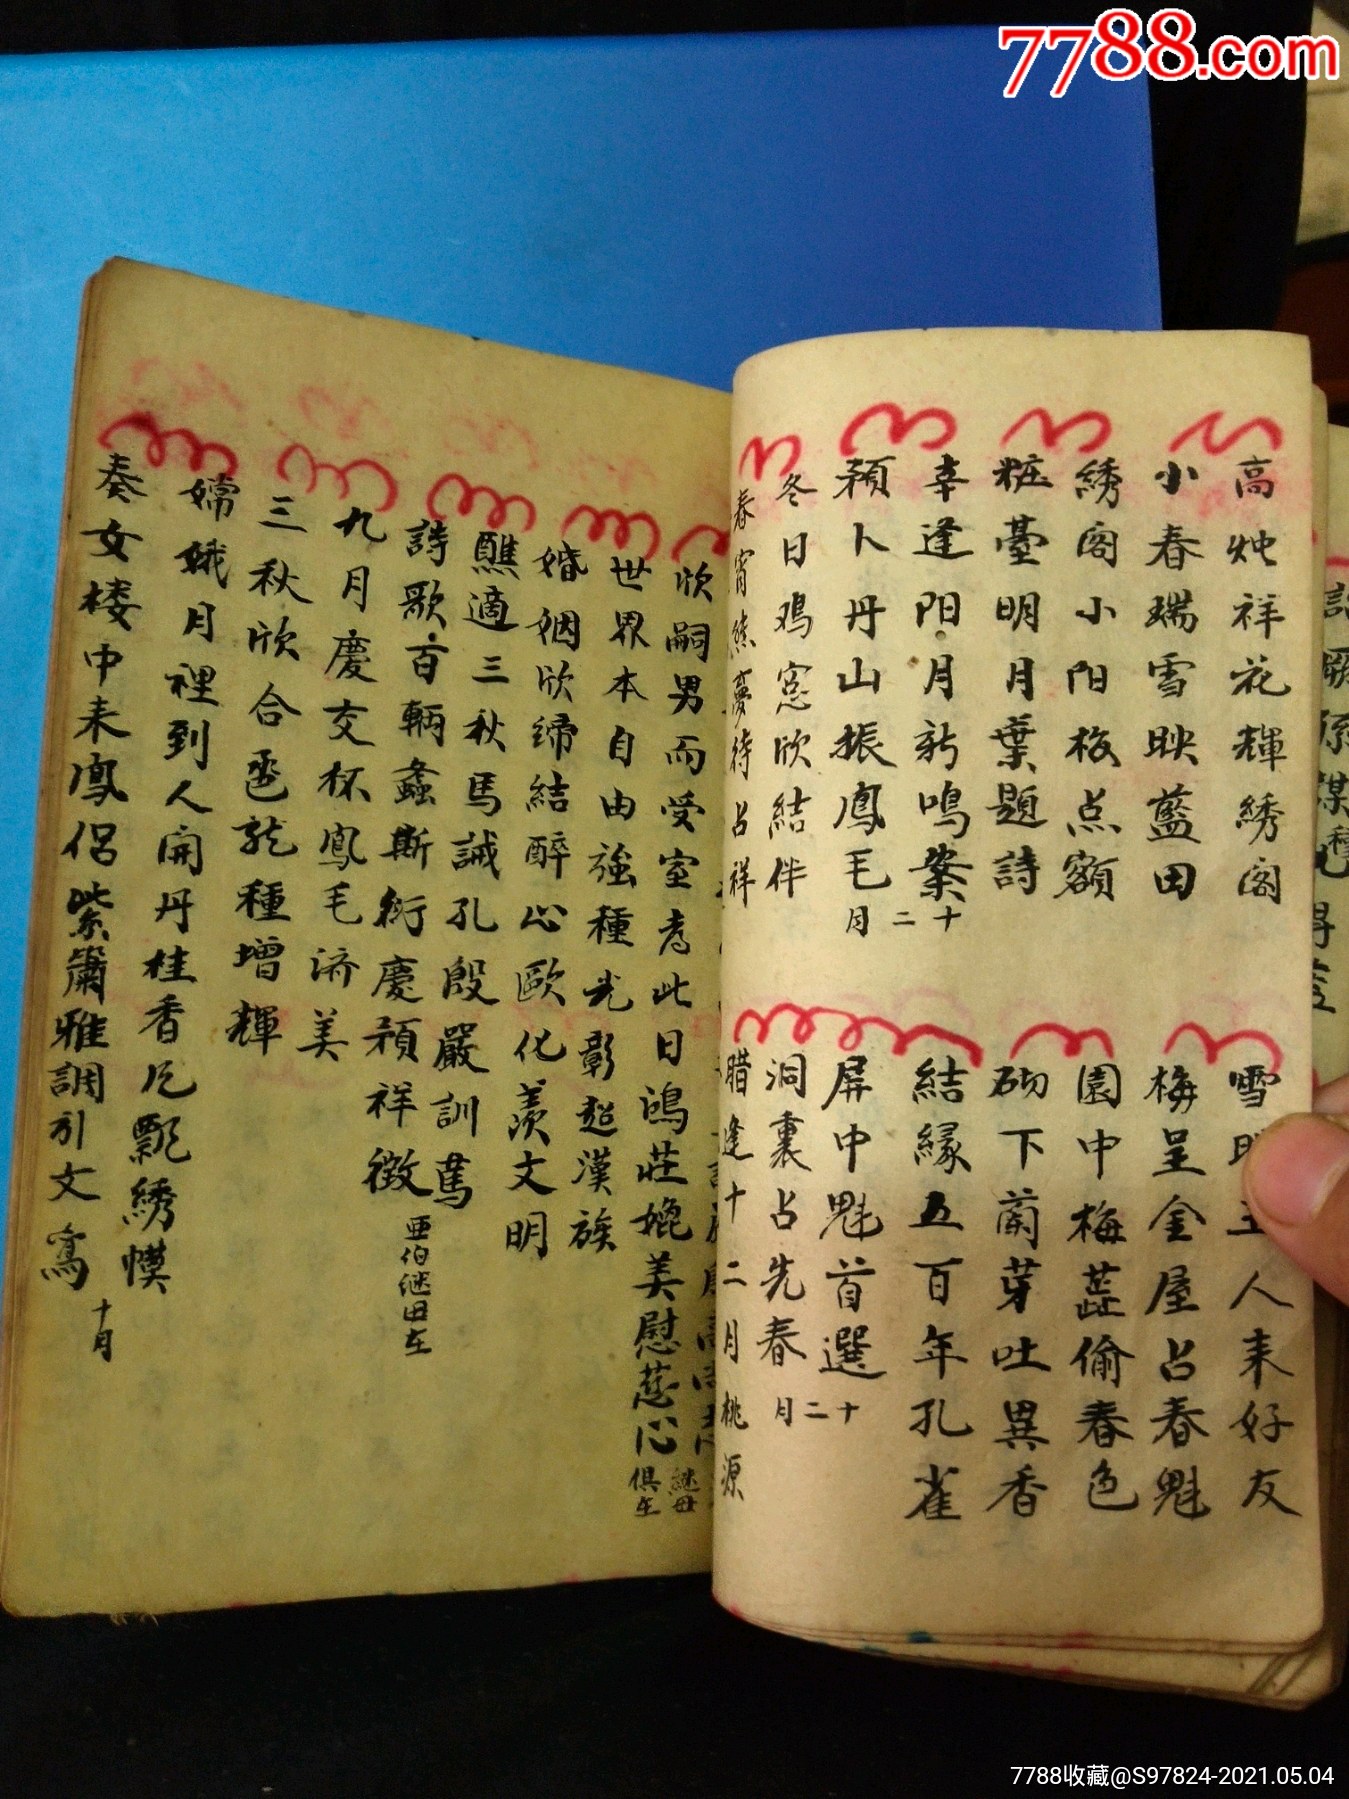 7788.com
高灺祥花輝綉阁
小春瑞雪映藍田
綉阁小阳梅点額
粧臺明月葉題詩
幸逢阳月新鳴案
預卜丹山振鳳毛
十二月
冬日鸡窓欣結伴
春宵熊夢待占祥
雪 人来好友
梅呈金屋占春魁
園中梅蕋偷春色
砌下蘭芽吐異香
結緣五百年孔雀
屏中魁首選
十二月
洞裏占先春
腊逢十二月桃源
欣嗣男而受室为此日鴻莊媲美慰慈心
继母俱在
世界本自由強種光彰超漢族
婚姻欣締結醉心歐化羨文明
醮適三秋馬誡孔殷嚴訓篤
詩歌百輌螽斯衍慶預祥徵
亜伯继田在
九月慶交杯鳳毛济美
三秋欣合卺龍種增輝
嫦娥月裡到人间丹桂香凡飄綉幙
奏女楼中来鳳侶紫簫雅調引文鸞
十月
7788收藏@S97824-2021.05.04